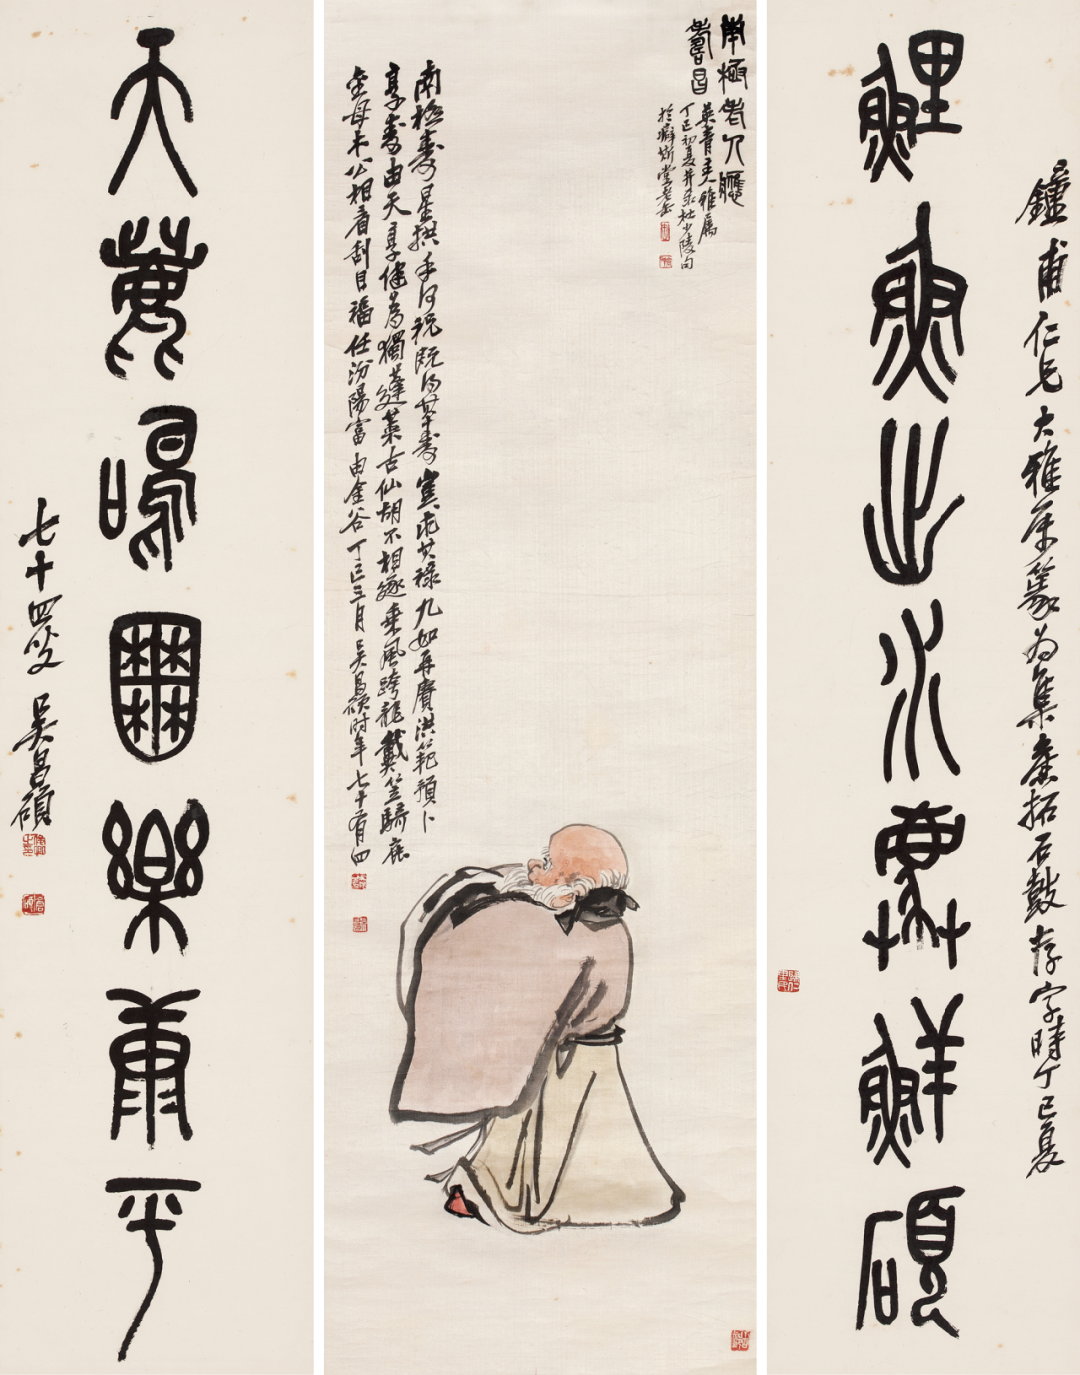 鐘甫仁兄大雅屬篆為集秦拓石鼓存字時丁巳夏
鯉魚水鮮碩
南極老人應
壽昌
英青雅屬
丁巳初夏并录杜少陵句
於癖斯堂老缶
南極壽星拱手何祝既其壽寔求其祿九如再賡洪範預卜
享壽由天享健為獨蓬萊古仙胡不相逐乘風跨龍戴笠騎鹿
金母木公相看刮目福任汾陽富由金谷丁巳三月吳昌碩時年七十有四
天鹿鳴囿樂康平
七十四叟吳昌碩